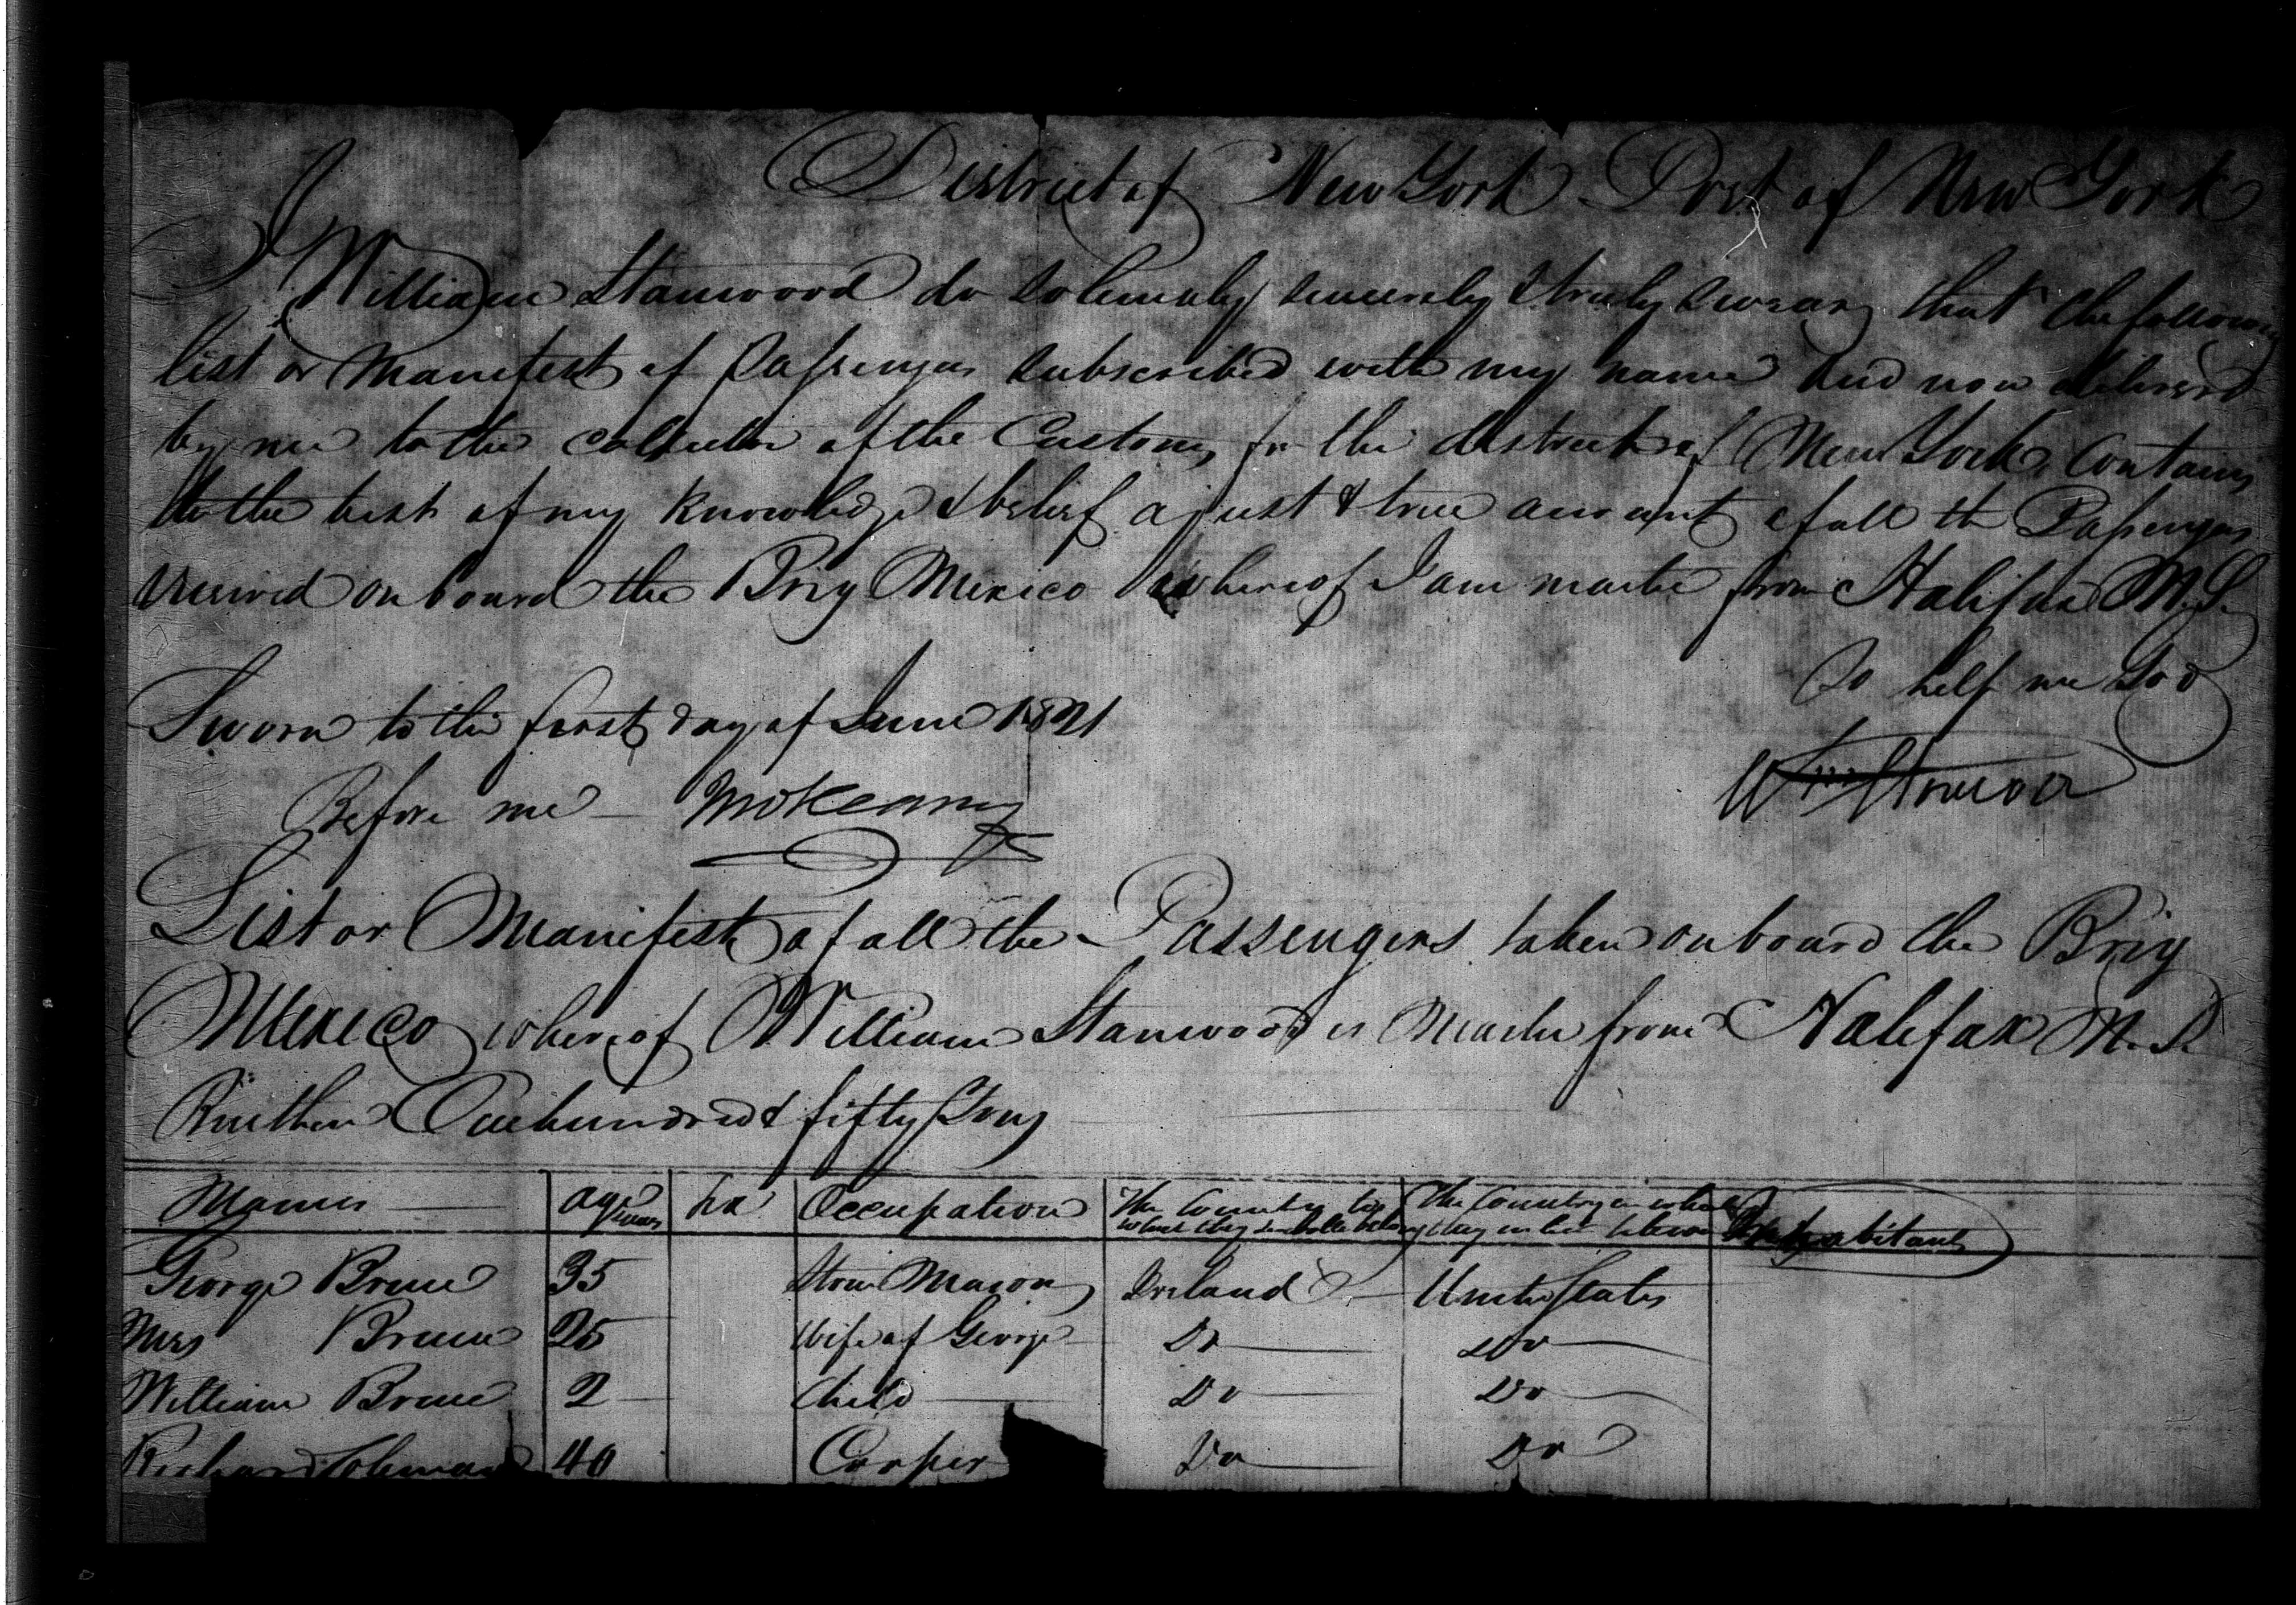 District of New York Port of New York
I William Stanwood do solemnly sincerely & truly swear that the following
list or Manifest of Passengers subscribed with my name and now delivered
by me to the Collector of the Customs for the district of New York Contains
to the best of my Knowledge & belief a just & true account of all the Passengers
received on board the Brig Mexico whereof I am master from Halifax N.S.
So help me God
Sworn to this first day of June 1821
Wm Stanwood
Before me
List or Manifest of all the Passengers taken on board the Brig
Mexico whereof William Stanwood is Master from Halifax N.S.
Burthen One hundred & fifty Tons
Names age years Sex Occupation The Country to which they severally belong The Country in which they intend to become inhabitants
George Bruce 35 Stone Mason Ireland United States
Mrs Bruce 25 Wife of George Do Do
William Bruce 2 Child Do Do
Richard Coleman 40 Cooper Do Do